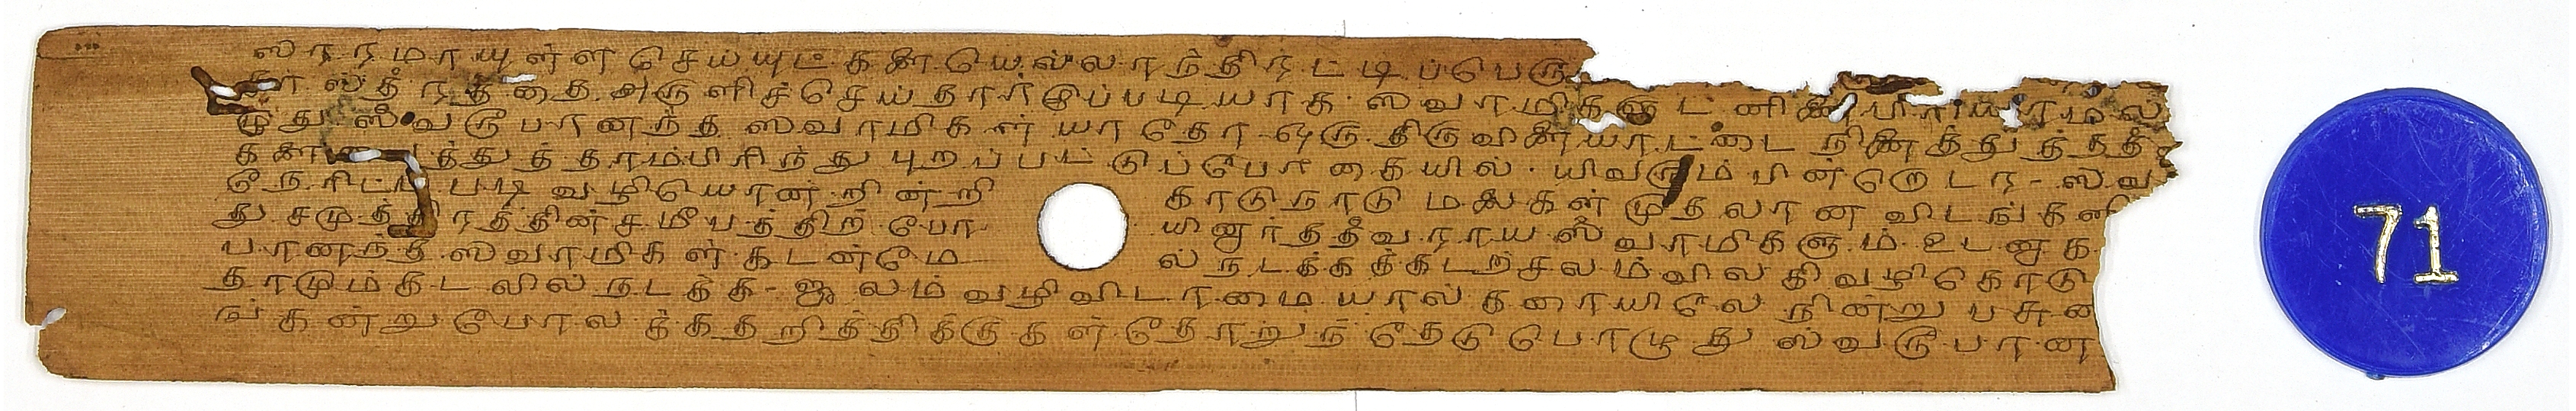 ஸாரமாயுள்ள செய்யுட்களையெல்லாந்திரட்டிப்பெரு
ஸ்திரத்தை அருளிச்செய்தார்இப்படியாக ஸ்வாமிகளுடனி
முது ஸ்வரூபானந்த ஸ்வாமிகள் யாதோ ஒரு திருவிளையாட்டை நினைத்துத்தத்
த்துத்தாம்பிரிந்து புறப்பட்டுப்போகையில் யிவரும் பின்றொடர ஸ்வ
நேரிட்டபடி வழியொன்றின்றி காடுநாடு மலைகள் முதலான விடங்களி
து சமுத்திரத்தின்சமீபத்திற் போ யினார்தத்வராய ஸ்வாமிகளும் உடனுக
பானந்த ஸ்வாமிகள் கடன்மே ல் நடக்கக்கடற்சலம்விலகிவழிகொடு
தாமும்கடலில் நடக்க ஜலம் வழிவிடாமையால் கரையிலே நின்று பசுவ
ங்கன்றுபோலக்கதறித்திக்குகள்தோறுந் தேடுபொழுது ஸ்வரூபான
71